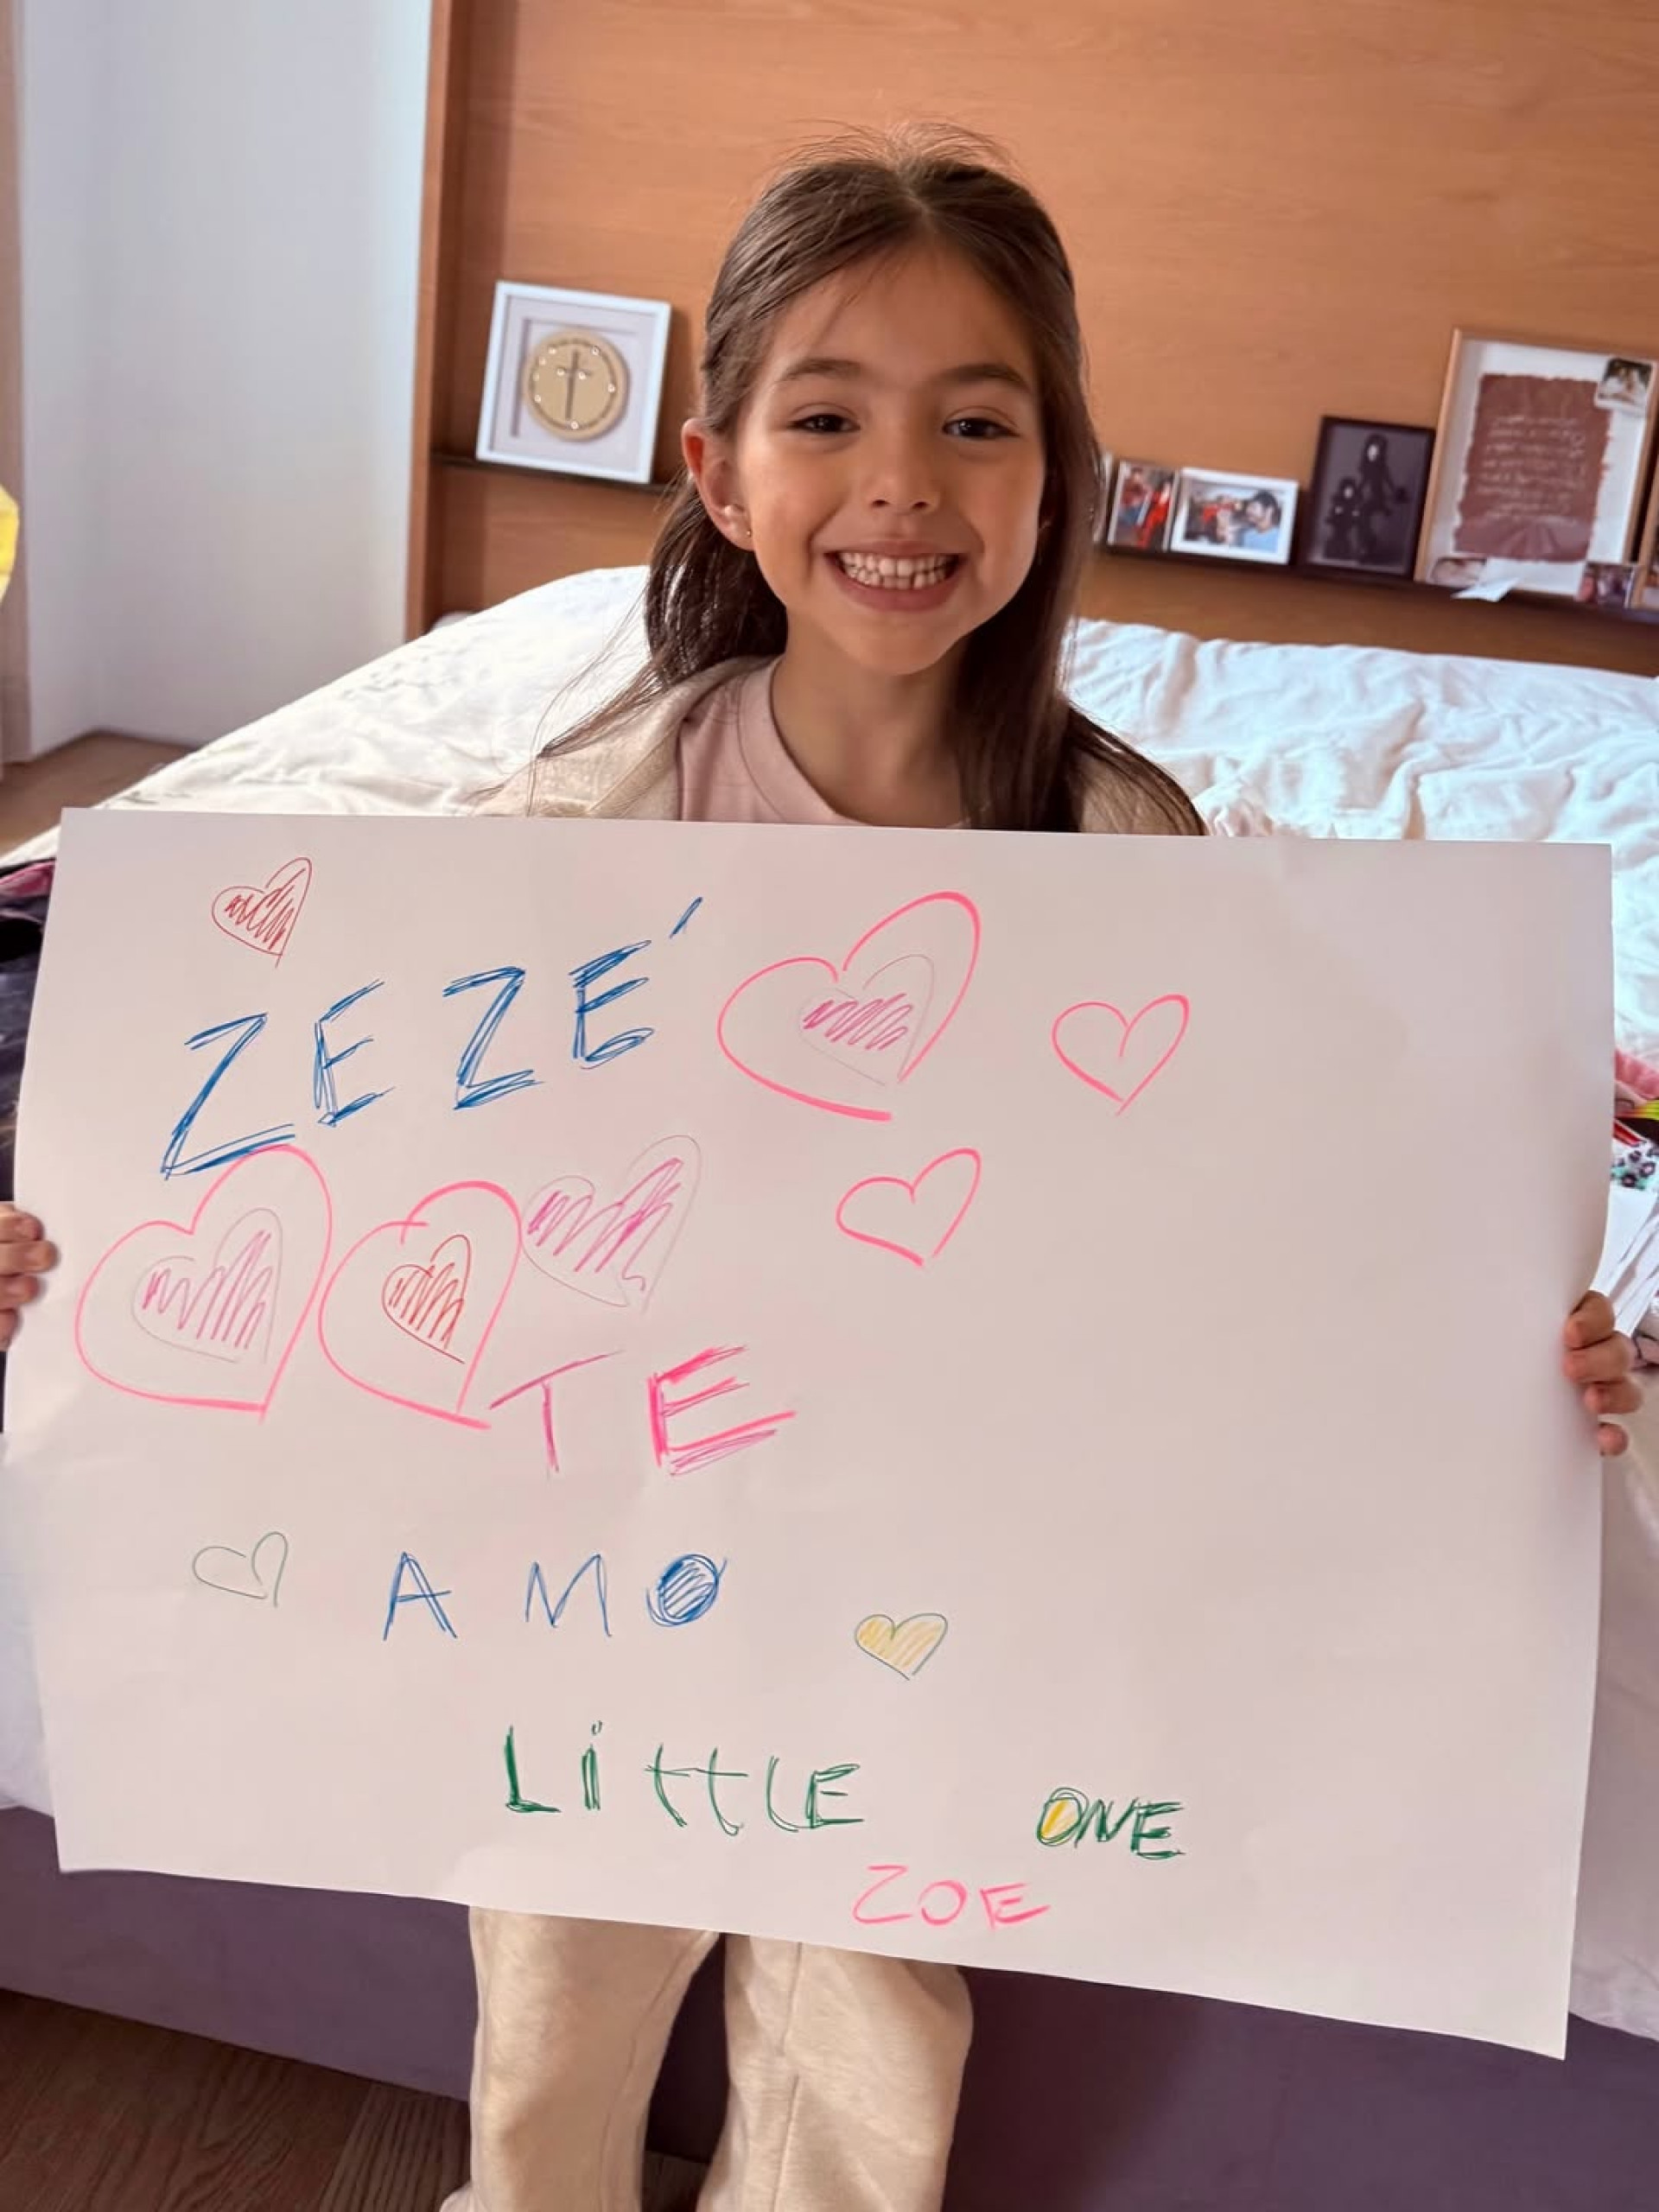 ZEZÉ
TE
AMO
LittLE ONE
ZOE